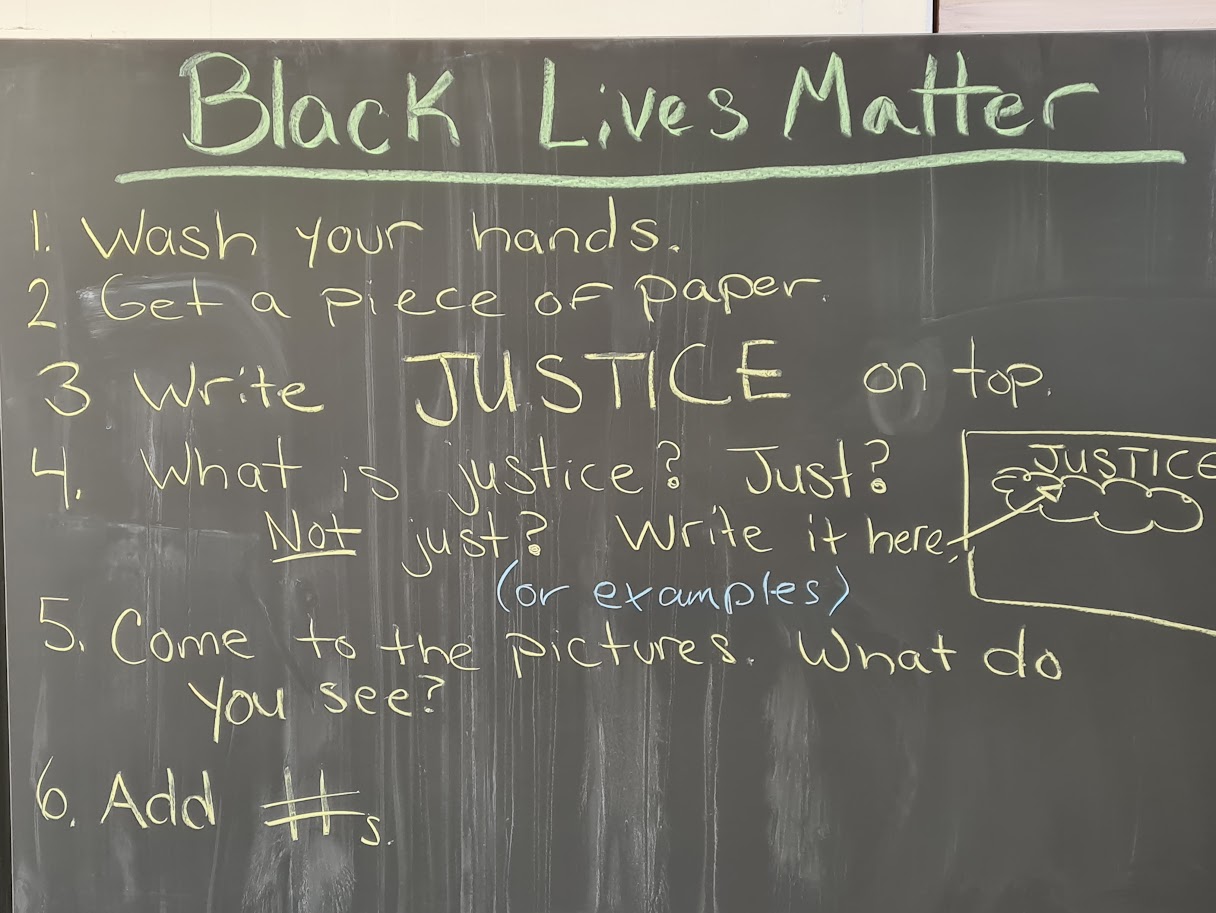 Black Lives Matter
1. Wash your hands.
2 Get a piece of paper.
3 Write JUSTICE on top.
4. What is justice? Just?
JUSTICE
Not just? Write it here
(or examples)
5. Come to the pictures. What do
you see?
6. Add #s.